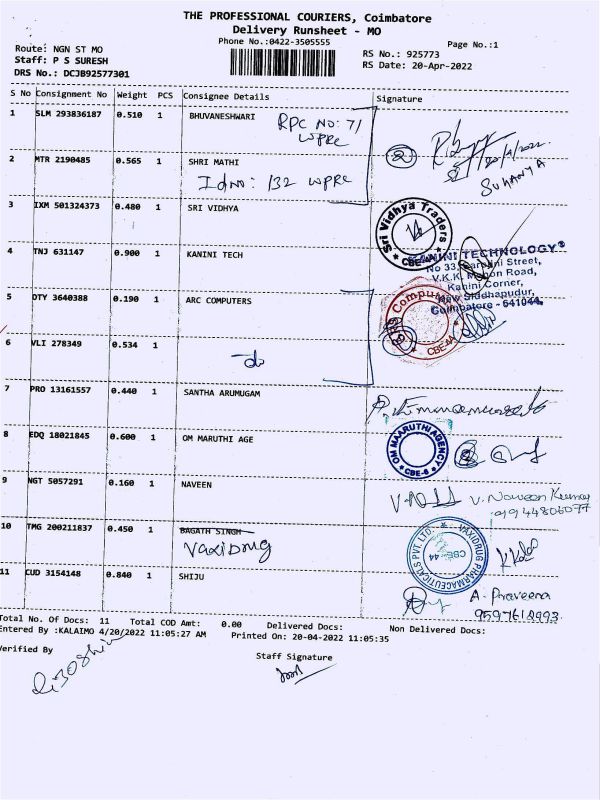 THE PROFESSIONAL COURIERS, Coimbatore
Delivery Runsheet - MO
Phone No.:0422-3505555
Page No.:1
Route: NGN ST MO
Staff: P S SURESH
DRS No.: DCJB92577301
RS No.: 925773
RS Date: 20-Apr-2022
S No Consignment No Weight PCS Consignee Details Signature
1 SLM 293836187 0.510 1 BHUVANESHWARI
RPC NO: 71
WPRC
2 MTR 2190485 0.565 1 SHRI MATHI
Id no: 132 WPRC
2
20/4/2022
SUHANYA
3 IXM 501324373 0.480 1 SRI VIDHYA
Sri Vidhya Traders
CBE-44
4 TNJ 631147 0.900 1 KANINI TECH
KANINI TECHNOLOGY®
No 33, Bharathi Street,
V.K.K. Menon Road,
Kanini Corner,
New Siddhapudur,
Coimbatore - 641044.
5 DTY 3640388 0.190 1 ARC COMPUTERS
CBE-44
6 VLI 278349 0.534 1
do
7 PRO 13161557 0.440 1 SANTHA ARUMUGAM
8 EDQ 18021845 0.600 1 OM MARUTHI AGE
OM MAARUTHI AGENCY
CBE-6
9 NGT 5057291 0.160 1 NAVEEN
V. Naveen Kumar
9944806077
10 TMG 200211837 0.450 1 BAGATH SINGH
Vaxidrug
VAXIDRUG PHARMACEUTICALS PVT. LTD.
CBE-44
11 CUD 3154148 0.840 1 SHIJU
A. Praveena
9597612993
Total No. Of Docs: 11 Total COD Amt: 0.00 Delivered Docs: Non Delivered Docs:
Entered By :KALAIMO 4/20/2022 11:05:27 AM Printed On: 20-04-2022 11:05:35
Verified By
Staff Signature